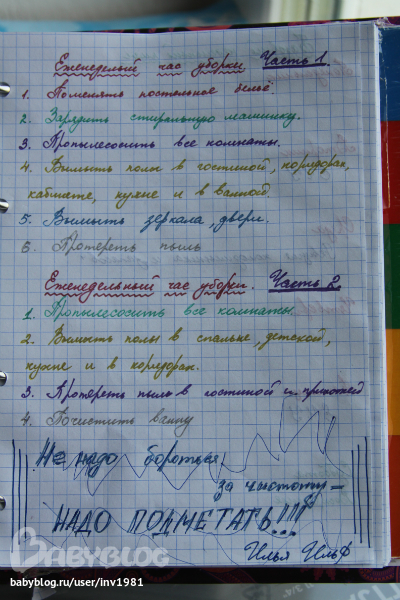 Еженедельный час уборки Часть 1.
1. Поменять постельное бельё.
2. Зарядить стиральную машинку.
3. Пропылесосить все комнаты.
4. Вымыть полы в гостиной, коридорах,
кабинете, кухне и в ванной.
5. Вымыть зеркала, двери.
6. Протереть пыль
Еженедельный час уборки. Часть 2.
1. Пропылесосить все комнаты.
2. Вымыть полы в спальне, детской,
кухне и в коридорах.
3. Протереть пыль в гостиной и прихожей
4. Почистить ванну
Не надо бороться
за чистоту -
НАДО ПОДМЕТАТЬ!!!
Илья Ильф
BABYBLOG
babyblog.ru/user/inv1981